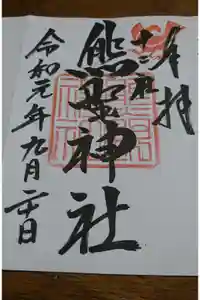 奉拝
十二社
熊野神社
令和元年九月二十日